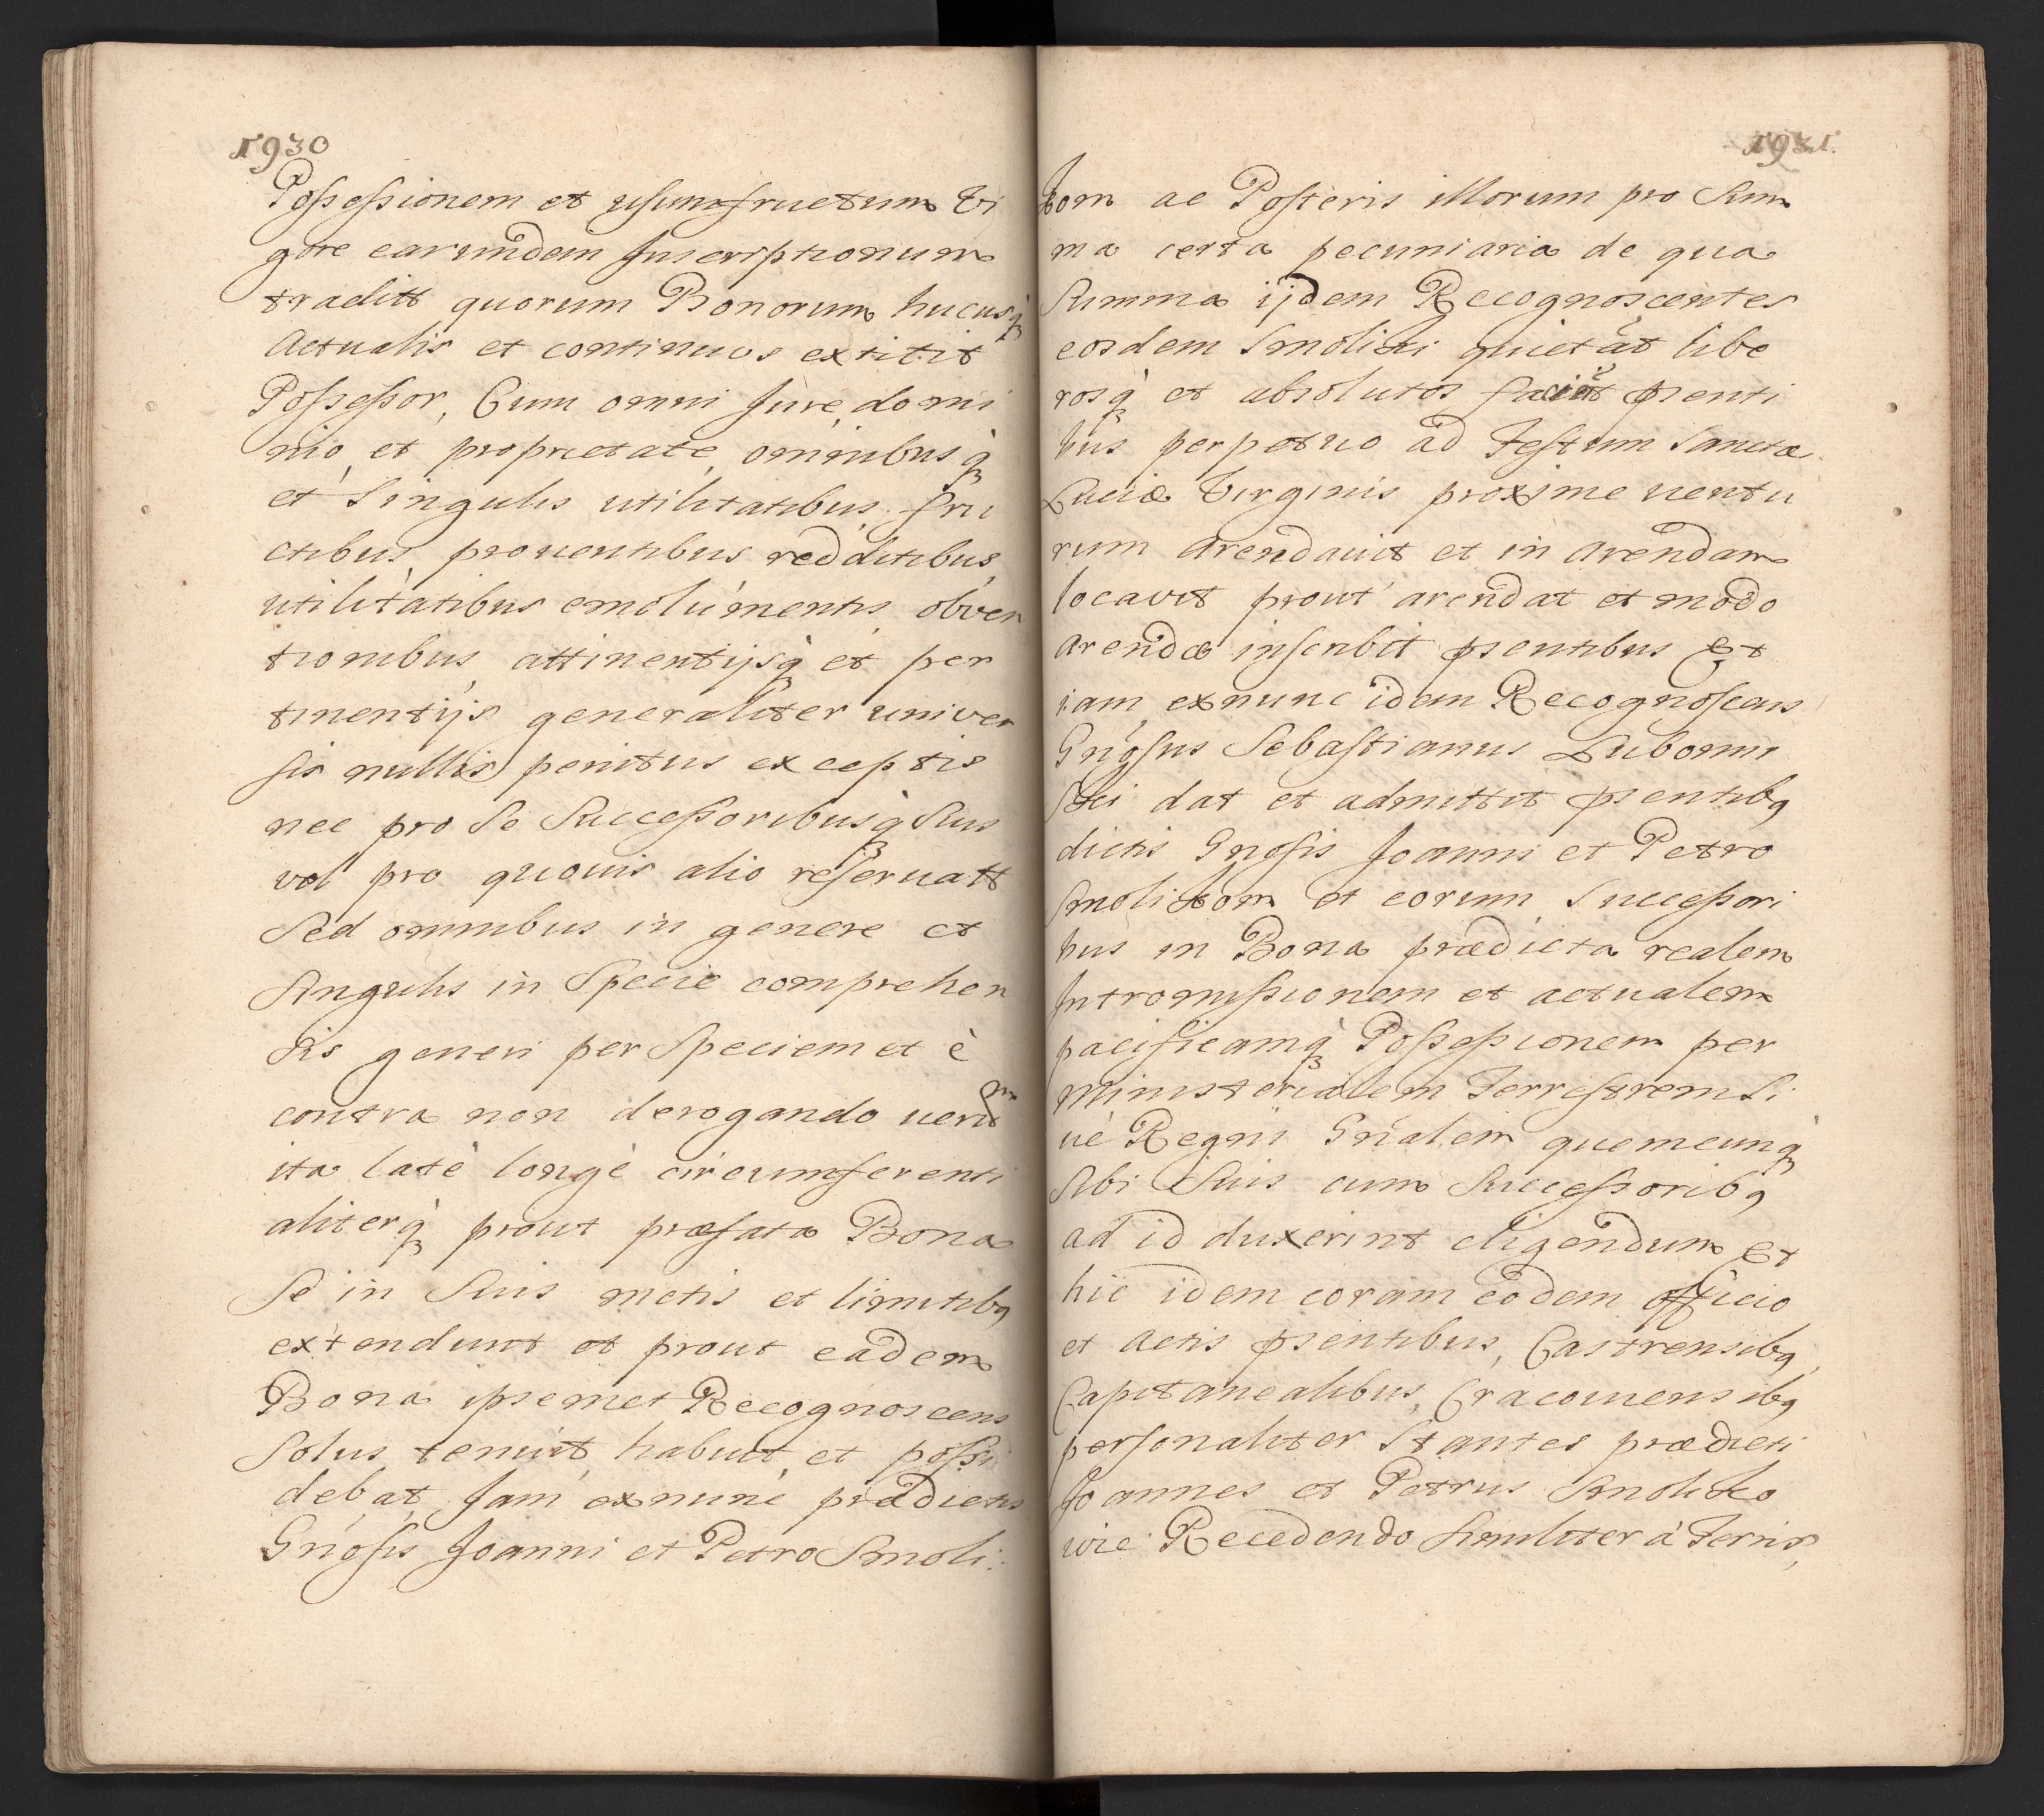 1930
Possessionem et usumfructum Vi
gore earumdem Inscriptionum
traditt quorum Bonorum hucusq̀
Actualis et continuus extitit
Possessor, Cum omni Jure, domi
nio, et proprietate, omnibusq̀
et Singulis utilitatibus, fru
ctibus, prouentibus redditibus,
utilitatibus emolumentis, obven
tionibus, attinentijsq̀ et per
tinentijs generaliter univer
sis nullis penitus exceptis
nec pro Se Successoribusq̀ Suis
vel pro quouis alio reseruatt
Sed omnibus in genere et
Singulis in Specie comprehen
sis generi per Speciem et è
contra non derogando
ita latè longè circumferenti
aliterq̀ prout præfata Bona
Se in Suis metis et limitibq
extendunt et prout eadem
Bona ipsemet Recognoscens
Solus tenuit, habuit, et possi
debat, Jam exnunc prædictis
Gnosis Joanni et Petro Smoli:
1931.
kom ac Posteris illorum pro Sum
ma certa pecuniaria de qua
Summa ijdem Recognoscentes
eosdem Smoliki quietat libe
rosq̀ et absolutos psenti
bus perpetuo ad Festum Sanctæ
Luciæ Virginis proxime uentu
rum arendauit et in arendam
locavit prout arendat et modo
arendæ inscribit psentibus Et
iam exnunc idem Recognoscens
Gnosus Sebastianus Lubomir
ski dat et admittit psentibq
dictis Gnosis Joanni et Petro
Smolikom et eorum Successori
bus in Bona prædicta realem
Intromissionem et actualem
pacificamq̀ Possessionem per
Ministerialem Terrestrem Si
uè Regni Gnalem quemcunq̀
Sibi Suis cum Successoribq
ad id duxerint eligendum Et
hic idem coram eodem officio
et Actis psentibus, Castrensibq,
Capitanealibus, Cracouiensibq
personaliter Stantes prædicti
Joannes et Petrus Smoliko
wie Recedendo Similiter à Terris,